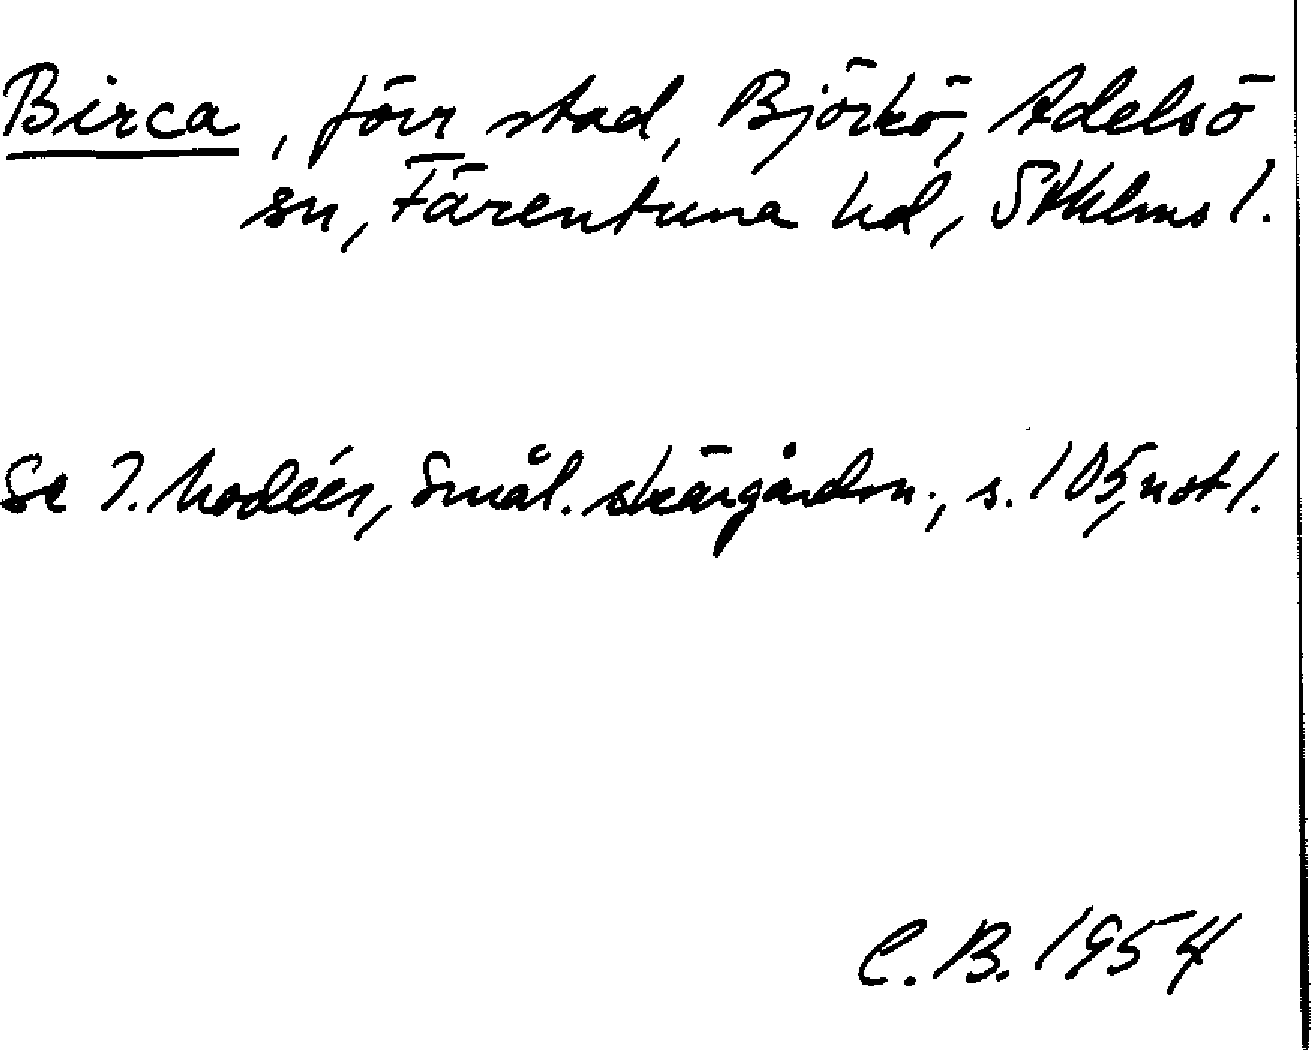 Birca, förr stad, Björkö, Adelsö
sn, Färentuna hd, Sthlms l.
Se I. Modéer, Smål. skärgårdsn., s. 105, not 1.
C. B. 1954